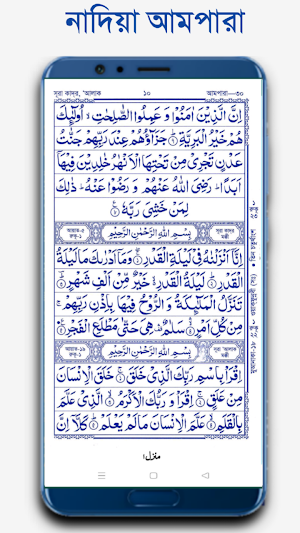 নাদিয়া আমপারা
সূরা কাদ্‌র, 'আলাক ১০ আমপারা—৩০
اِنَّ الَّذِيْنَ اٰمَنُوْا وَ عَمِلُوا الصّٰلِحٰتِ ۙ اُولٰٓئِكَ
هُمْ خَيْرُ الْبَرِيَّةِ ۞ جَزَآؤُهُمْ عِنْدَ رَبِّهِمْ جَنّٰتُ
عَدْنٍ تَجْرِيْ مِنْ تَحْتِهَا الْاَنْهٰرُ خٰلِدِيْنَ فِيْهَا
اَبَدًا ؕ رَضِيَ اللّٰهُ عَنْهُمْ وَ رَضُوْا عَنْهُ ؕ ذٰلِكَ
لِمَنْ خَشِيَ رَبَّهٗ
بِسْمِ اللّٰهِ الرَّحْمٰنِ الرَّحِيْمِ
اِنَّآ اَنْزَلْنٰهُ فِيْ لَيْلَةِ الْقَدْرِ ۞ وَمَآ اَدْرٰىكَ مَا لَيْلَةُ
الْقَدْرِ ۞ لَيْلَةُ الْقَدْرِ ۙ خَيْرٌ مِّنْ اَلْفِ شَهْرٍ ۞
تَنَزَّلُ الْمَلٰٓئِكَةُ وَ الرُّوْحُ فِيْهَا بِاِذْنِ رَبِّهِمْ ۚ
مِنْ كُلِّ اَمْرٍ ۞ سَلٰمٌ ۛ هِيَ حَتّٰى مَطْلَعِ الْفَجْرِ
بِسْمِ اللّٰهِ الرَّحْمٰنِ الرَّحِيْمِ
اِقْرَاْ بِاسْمِ رَبِّكَ الَّذِيْ خَلَقَ ۞ خَلَقَ الْاِنْسَانَ
مِنْ عَلَقٍ ۞ اِقْرَاْ وَ رَبُّكَ الْاَكْرَمُ ۞ الَّذِيْ عَلَّمَ
بِالْقَلَمِ ۞ عَلَّمَ الْاِنْسَانَ مَا لَمْ يَعْلَمْ ۞ كَلَّآ اِنَّ
منزل